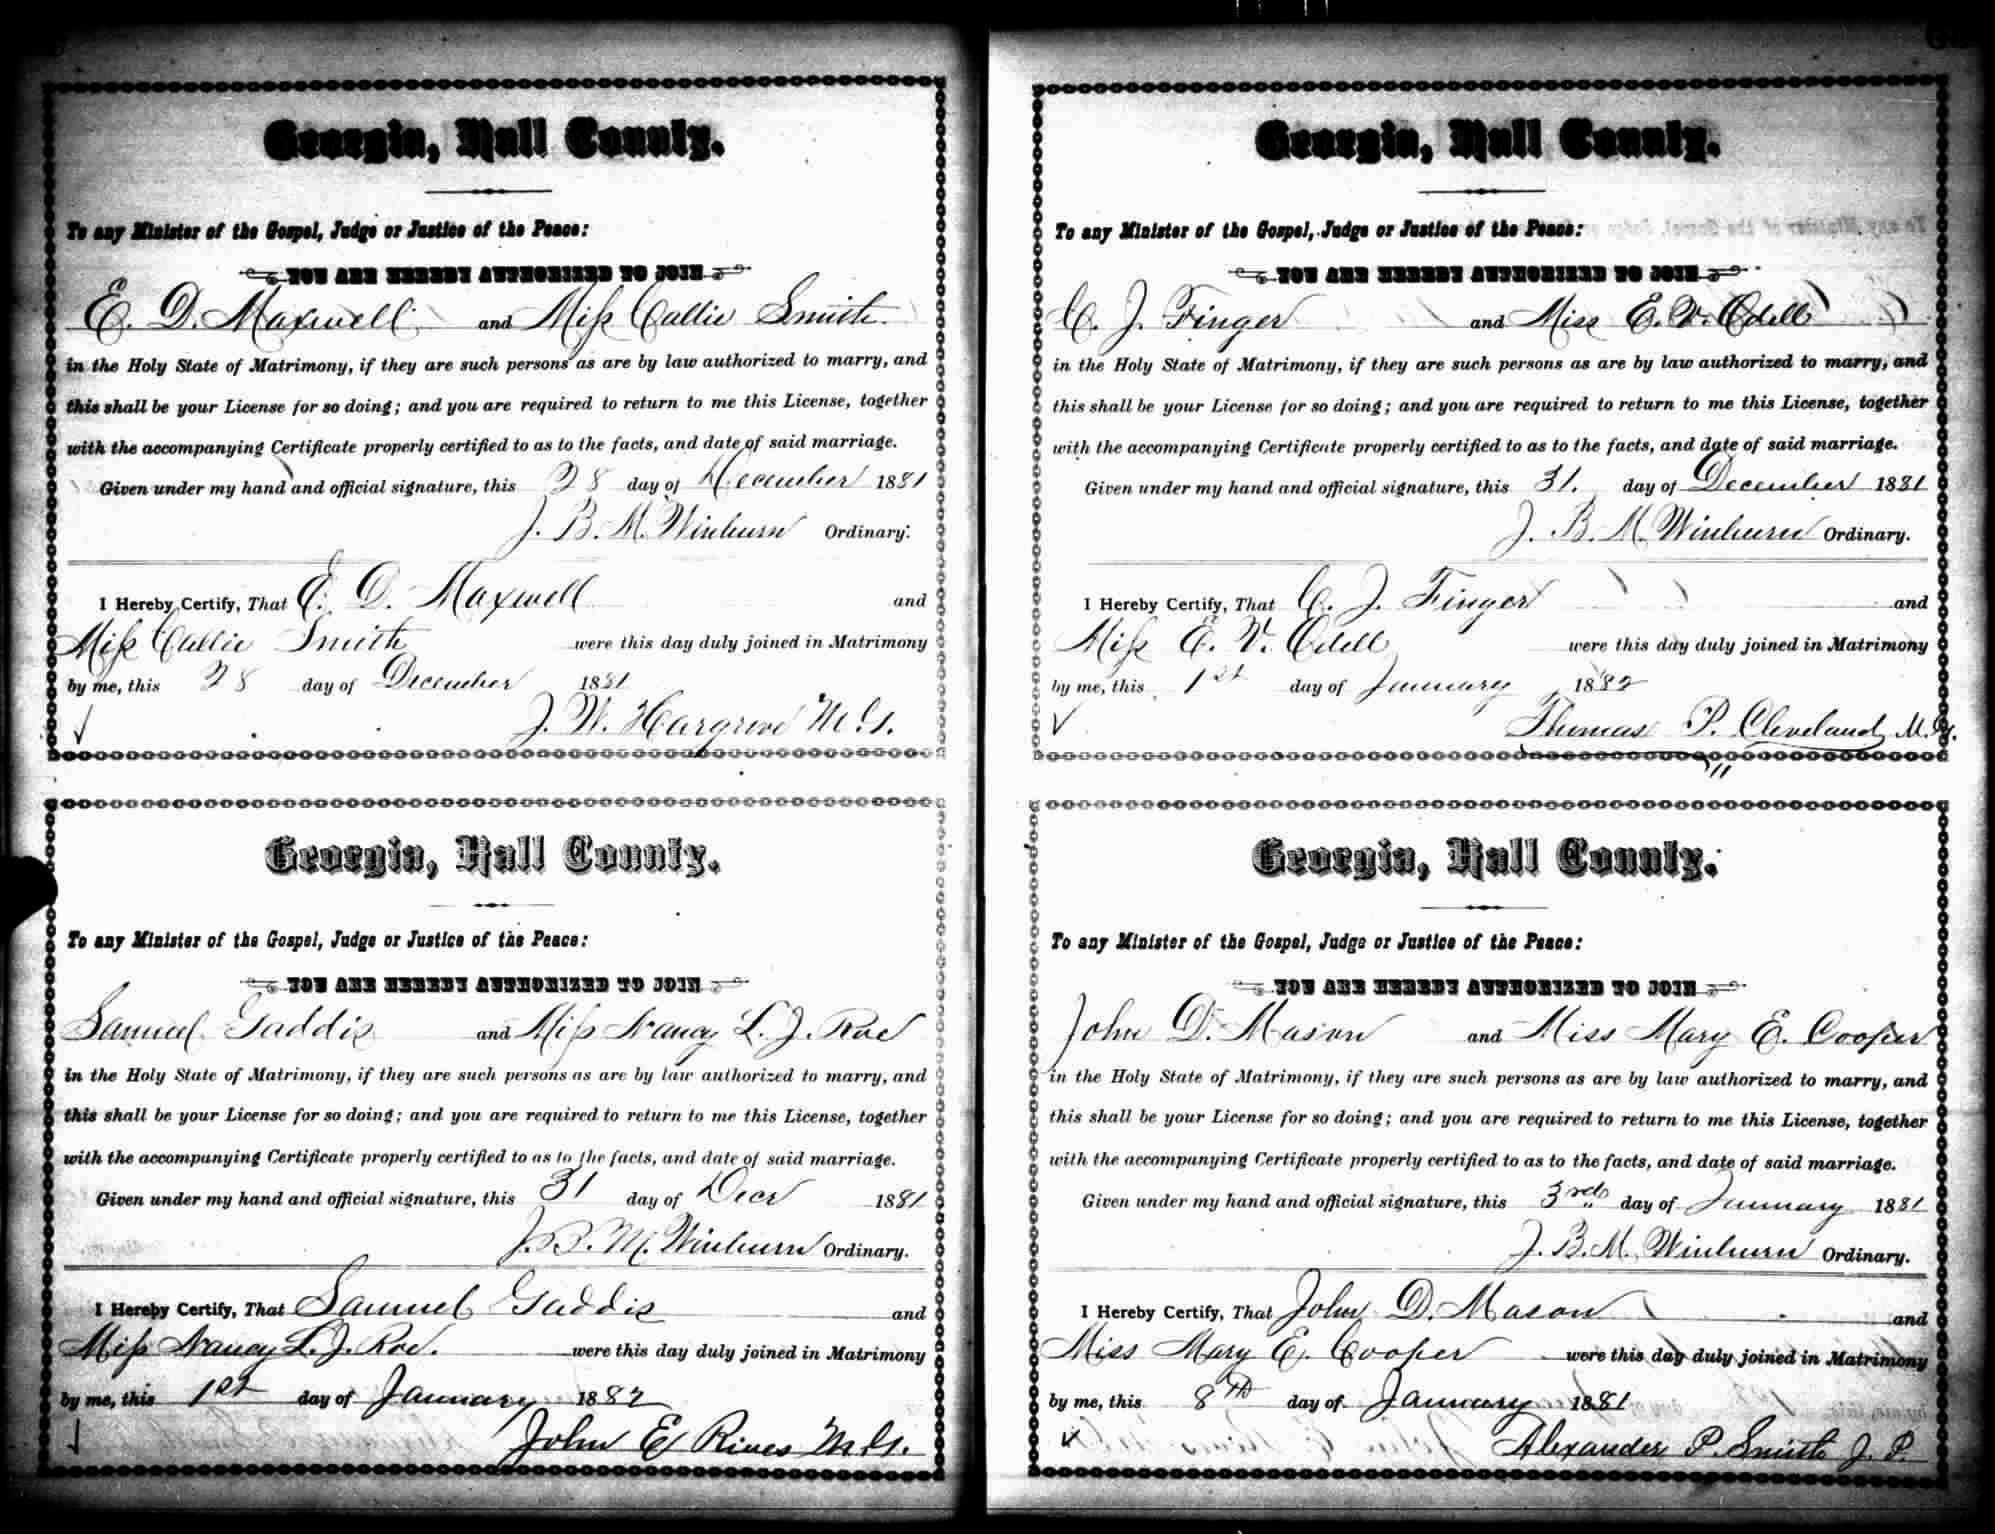 Georgia, Hall County.
To any Minister of the Gospel, Judge or Justice of the Peace:
YOU ARE HEREBY AUTHORIZED TO JOIN
E. D. Maxwell and Miss Callie Smith
in the Holy State of Matrimony, if they are such persons as are by law authorized to marry, and
this shall be your License for so doing; and you are required to return to me this License, together
with the accompanying Certificate properly certified to as to the facts, and date of said marriage.
Given under my hand and official signature, this 28 day of December 1881
J. B. M. Winburn Ordinary.
I Hereby Certify, That E. D. Maxwell and
Miss Callie Smith were this day duly joined in Matrimony
by me, this 28 day of December 1881
J. W. Hargrove M.G.
Georgia, Hall County.
To any Minister of the Gospel, Judge or Justice of the Peace:
YOU ARE HEREBY AUTHORIZED TO JOIN
Samuel Gaddis and Miss Nancy L. J. Roe
in the Holy State of Matrimony, if they are such persons as are by law authorized to marry, and
this shall be your License for so doing; and you are required to return to me this License, together
with the accompanying Certificate properly certified to as to the facts, and date of said marriage.
Given under my hand and official signature, this 31 day of Decr 1881
J. B. M. Winburn Ordinary.
I Hereby Certify, That Samuel Gaddis and
Miss Nancy L. J. Roe. were this day duly joined in Matrimony
by me, this 1st day of January 1882
John E. Rives M.G.
Georgia, Hall County.
To any Minister of the Gospel, Judge or Justice of the Peace:
YOU ARE HEREBY AUTHORIZED TO JOIN
C. J. Finger and Miss E. V. Odell
in the Holy State of Matrimony, if they are such persons as are by law authorized to marry, and
this shall be your License for so doing; and you are required to return to me this License, together
with the accompanying Certificate properly certified to as to the facts, and date of said marriage.
Given under my hand and official signature, this 31. day of December 1881
J. B. M. Winburn Ordinary.
I Hereby Certify, That C. J. Finger and
Miss E. V. Odell were this day duly joined in Matrimony
by me, this 1st day of January 1882
Thomas P. Cleveland, M.G.
Georgia, Hall County.
To any Minister of the Gospel, Judge or Justice of the Peace:
YOU ARE HEREBY AUTHORIZED TO JOIN
John D. Mason and Miss Mary E. Cooper
in the Holy State of Matrimony, if they are such persons as are by law authorized to marry, and
this shall be your License for so doing; and you are required to return to me this License, together
with the accompanying Certificate properly certified to as to the facts, and date of said marriage.
Given under my hand and official signature, this 3rd day of January 1881
J. B. M. Winburn Ordinary.
I Hereby Certify, That John D. Mason and
Miss Mary E. Cooper were this day duly joined in Matrimony
by me, this 8th day of January 1881
Alexander P. Smith J. P.